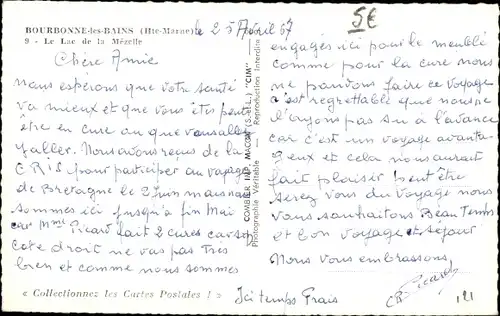 BOURBONNE-les-BAINS (Hte-Marne) le 25 Avril 67
9 - Le Lac de la Mézelle
5€
Chère Amie
nous espérons que votre santé
va mieux et que vous êtes peut
être en cure ou que vous allez
y aller. Nous avons reçus de la
pour participer au voyage
de Bretagne le 2 juin mais nous
sommes ici jusqu'à fin Mai
car Mme Picard fait 2 cures car son
coté droit ne va pas très
bien et comme nous sommes
« Collectionnez les Cartes Postales ! »
COMBIER IMP. MACON (S.-et-L.) "CIM"
Photographie Véritable - Reproduction interdite
engagés ici pour le meublé
comme pour la cure nous
ne pouvons faire ce voyage
c'est regrettable que nous ne
l'ayons pas su à l'avance
car c'est un voyage avanta
geux et cela nous aurait
fait plaisir peut être
serez vous du voyage nous
vous souhaitons Beau Temps
et bon voyage et séjour
Nous vous embrassons
Ici temps frais
Picard
121